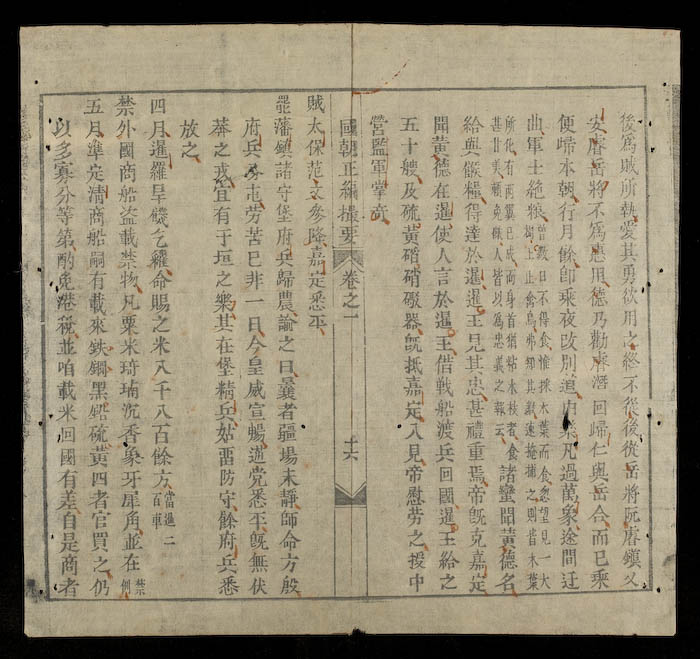 後爲賊所執愛其勇欲用之終不從後從岳將阮膚鎮乂
安膚岳將不爲應用德乃勸膚潛回歸仁與岳合而已乘
便歸本朝行月餘卽乘夜改別道由樂凡過萬象途間迂
曲軍士絶粮嘗數日不得食惟採木葉而食忽望見一大樹上止禽鳥弗知其數速掩捕之則皆木葉
所化有兩翼已成而身首猶粘木枝者食甚甘美頓免饑人皆以爲忠義之報云諸蠻聞黃德名
給與餱糧得達於暹暹王見其忠甚禮重焉帝旣克嘉定
聞黃德在暹使人言於暹王借戰船渡兵回國暹王給之
五十艘及硫黄硝硝礮器旣抵嘉定入見帝慰劳之授中
營監軍掌奇
國朝正編撮要 卷之一 十六
賊太保范文參降嘉定悉平
罷藩鎮諸守堡府兵歸農諭之曰曩者疆場未靜師命方殷
府兵分屯劳苦已非一日今皇威宣暢逆党悉平旣無伏
莽之戎宜有于垣之樂其在堡精兵姑畱防守餘府兵悉
放之
四月暹羅旱饑乞糴命賜之米八千八百餘方當暹二百車
禁外國商船盗載禁物凡粟米琦瑀沉香象牙犀角並在禁例
五月準定清商船嗣有載來鉄鋼黑鉛硫黄四者官買之仍
以多寡分等第酌免港稅並咱載米回國有差自是商者